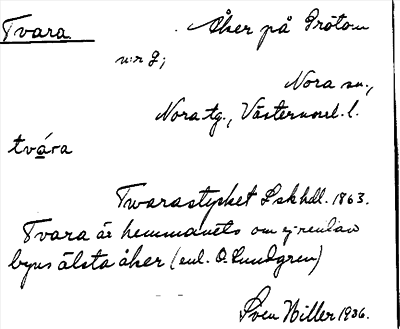 Tvara Åker på Grötom
n:r 2;
Nora sn.,
Nora tg., Västernorrl. l.
tvára
Twarastycket Lskhdl. 1863.
Tvara är hemmanets om ej
byns älsta åker (enl. O. Lundgren)
Sven Hiller 1936.